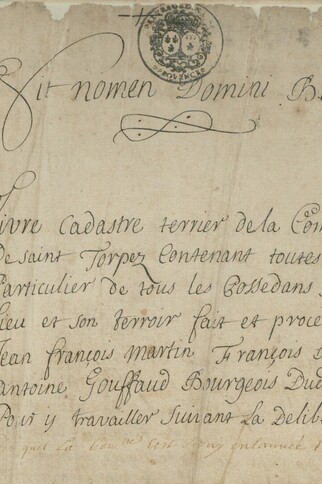 Sit nomen Domini
Livre Cadastre terrier de la Com
De saint Torpez Contenant toutes
Particulier de tous les Possedans
Lieu et son terroir fait et proce
Jean françois Martin François
Antoine Gouffaud Bourgeois Dud
Pour y travailler suivant La Delib